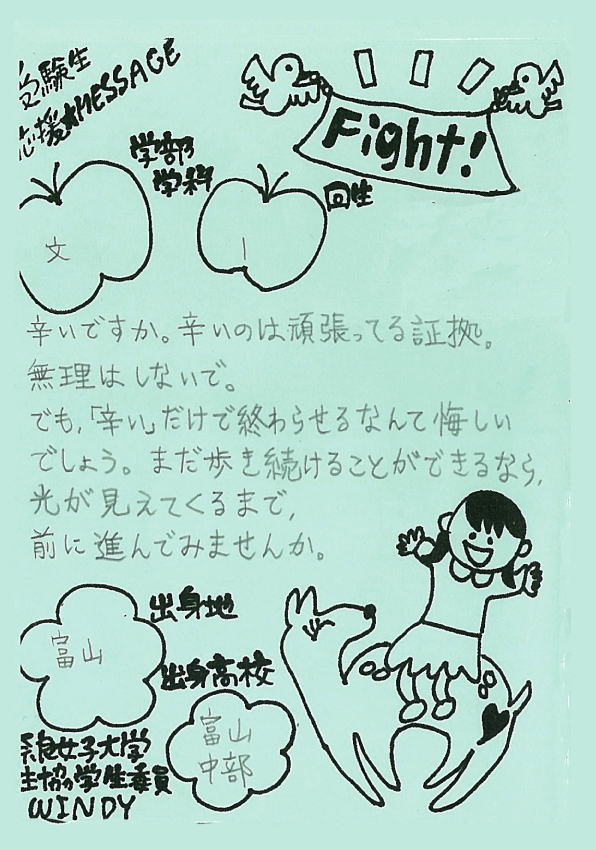 受験生
応援★MESSAGE
Fight!
学部
学科
回生
文
1
辛いですか。辛いのは頑張ってる証拠。
無理はしないで。
でも,「辛い」だけで終わらせるなんて悔しい
でしょう。まだ歩き続けることができるなら,
光が見えてくるまで,
前に進んでみませんか。
出身地
富山
出身高校
富山
中部
奈良女子大学
生協の学生委員
WINDY